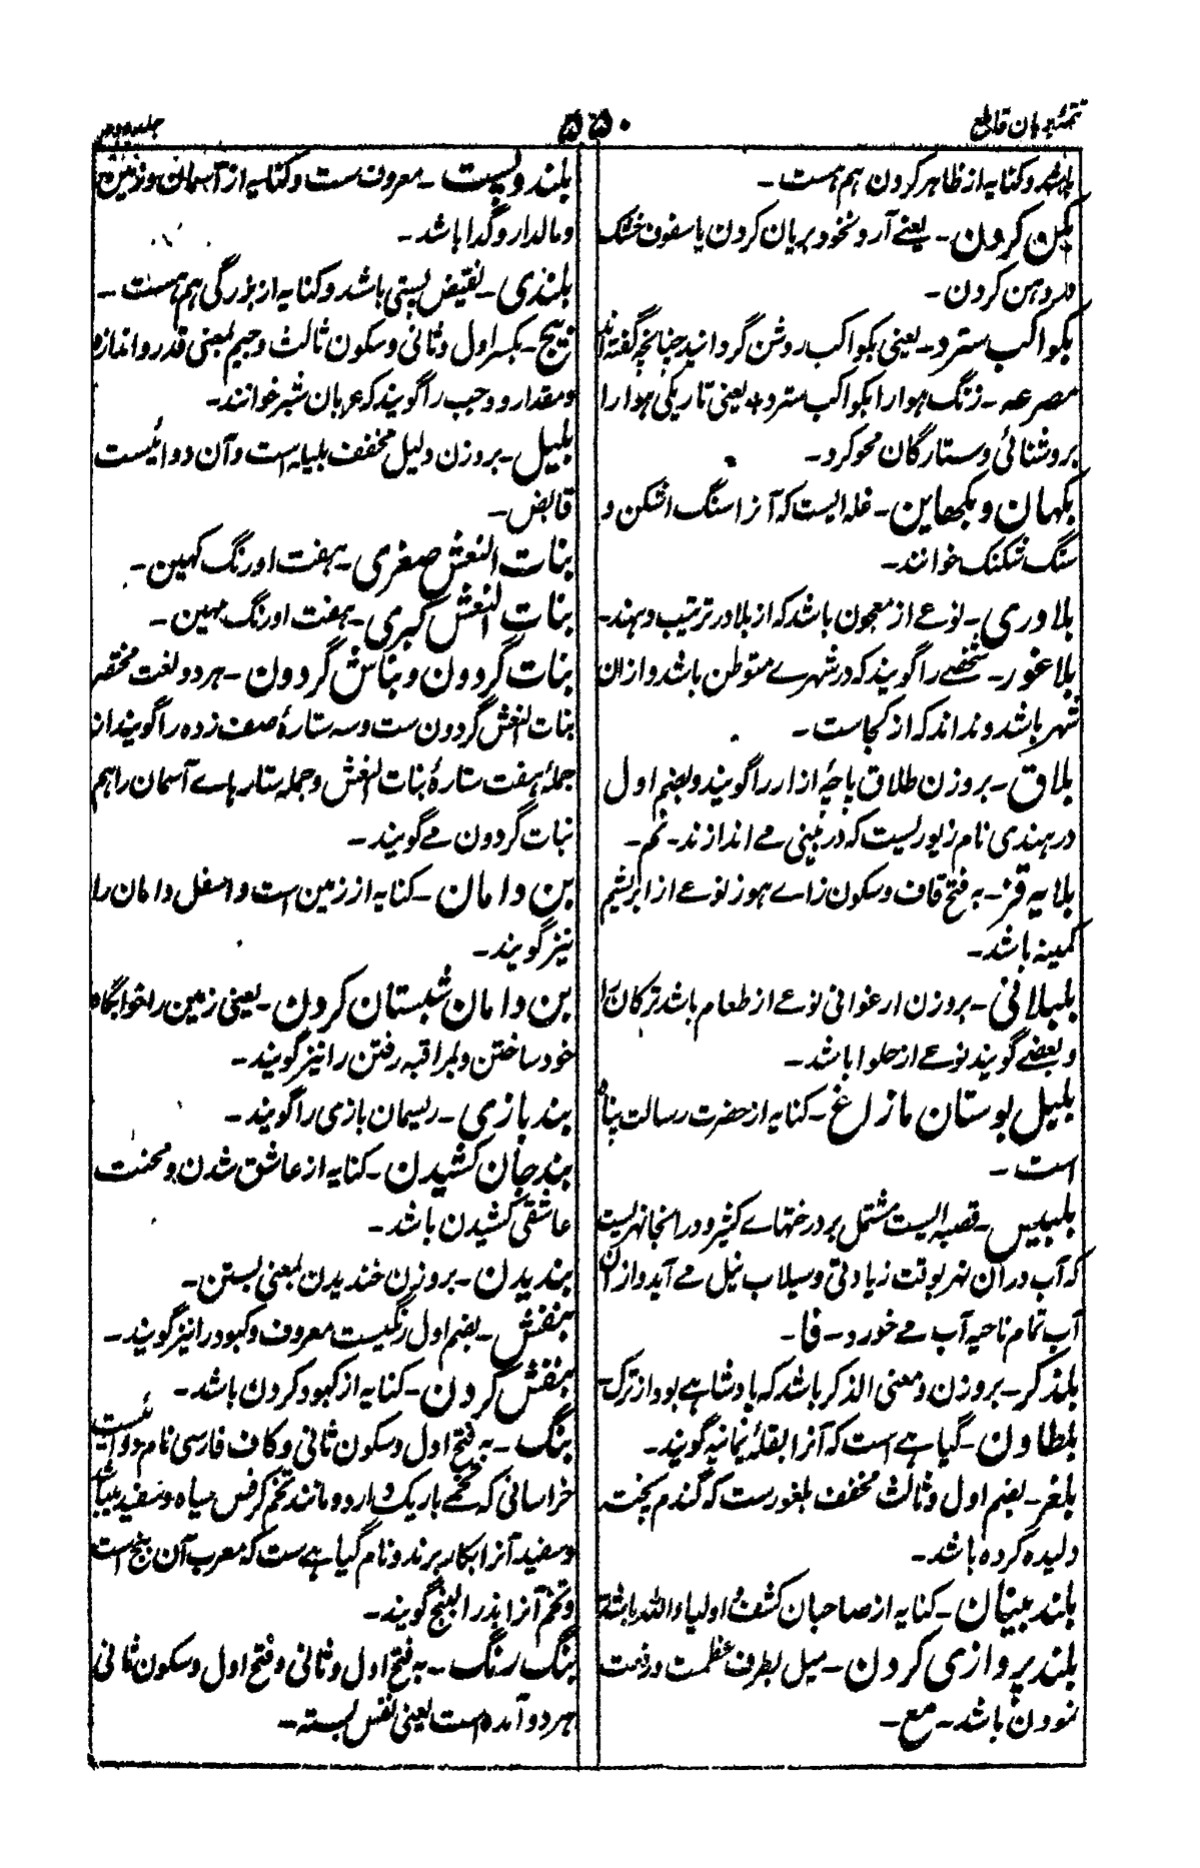 تتمۂ برہان قاطع
۵۵۰
جلد دوم
باشد و کنایه از ظاهر کردن هم هست ۔
بکن کردن ۔ یعنے آرد نخود بریان کردن یا سفوف خشک
در دهن کردن ۔
بکواکب سترد ۔ یعنی بکواکب روشن گردانید چنانچه گفته اند
مصرعه ۔ زنگ هوا را بکواکب سترد ٭ یعنی تاریکی هوا را
بروشنائی ستارگان محو کرد ۔
بکهان و بکهاین ۔ غله ایست که آنرا سنگ اشکن و
سنگ شکنک خوانند ۔
بلادری ۔ نوعے از معجون باشد که از بلادر ترتیب دهند ۔
بلاغور ۔ شخصے را گویند که در شهرے متوطن باشد و از ان
شهر باشد و نداند که از کجاست ۔
بلاق ۔ بروزن طلاق پاچۂ ازار را گویند و بضم اول
در هندی نام زیوریست که در بینی مے اندازند ۔ نم ۔
بلایه قز ۔ به فتح قاف و سکون زاے هوز نوعے از ابریشم
کمینه باشد ۔
بلبلانی ۔ بروزن ارغوانی نوعے از طعام باشد ترکان را
و بعضے گویند نوعے از حلوا باشد ۔
بلبل بوستان مازاغ ۔ کنایه از حضرت رسالت پناه
است ۔
بلبیس ۔ قصبه ایست مشتمل بر درختهاے کثیر و در انجا نهریست
که آب در آن نهر بوقت زیادتی و سیلاب نیل مے آید و از ان
آب تمام ناحیه آب مے خورد ۔ فا ۔
بلذکر ۔ بروزن و معنی الذکر باشد که پادشاهے بود از ترک
بلطاون ۔ گیاهے است که آنرا بقلۂ یمانیه گویند ۔
بلغر ۔ بضم اول و ثالث مخفف بلغورست که گندم پخته
دلیده کرده باشد ۔
بلند بینان ۔ کنایه از صاحبان کشف و اولیاء الله باشد
بلند پروازی کردن ۔ میل بطرف عظمت و رفعت
نمودن باشد ۔ مع ۔
بلند و پست ۔ معروف ست و کنایه از آسمان و زمین
و مالدار و گدا باشد ۔
بلندی ۔ نقیض پستی باشد و کنایه از بزرگی هم هست ۔
بکسر اول و ثانی و سکون ثالث و جیم بمعنی قدر و اندازه
و مقدار و وجب را گویند که عربان شبر خوانند ۔
بلیل ۔ بروزن دلیل مخفف بلیله است و آن دوائیست
قابض ۔
بنات النعش صغری ۔ هفت اورنگ کهین ۔
بنات النعش کبری ۔ هفت اورنگ مهین ۔
بنات گردون و بناش گردون ۔ هر دو لغت مختصر
بنات النعش گردون ست و سه ستارۂ صف زده را گویند از
جملۂ هفت ستارۂ بنات النعش و جمله ستارهاے آسمان را هم
بنات گردون مے گویند ۔
بن دامان ۔ کنایه از زمین است و اسفل دامان را
نیز گویند ۔
بن دامان شبستان کردن ۔ یعنی زمین را خوابگاه
خود ساختن و بمراقبه رفتن را نیز گویند ۔
بند بازی ۔ ریسمان بازی را گویند ۔
بند جان کشیدن ۔ کنایه از عاشق شدن و محنت
عاشقی کشیدن باشد ۔
بندیدن ۔ بروزن خندیدن بمعنی بستن ۔
بنفش ۔ بضم اول رنگیست معروف و کبود را نیز گویند ۔
بنفش کردن ۔ کنایه از کبود کردن باشد ۔
بنگ ۔ به فتح اول و سکون ثانی و کاف فارسی نام دوائیست
خراسانی که تخمے باریک دارد و مانند تخم کرفس سیاه و سفید میباشد
و سفید آنرا بکار برند و نام گیاهے ست که معرب آن بنج است
و تخم آنرا بذر البنج گویند ۔
بنگ رنگ ۔ به فتح اول و ثانی و فتح اول و سکون ثانی
هر دو آمده است یعنی نفس بسته ۔